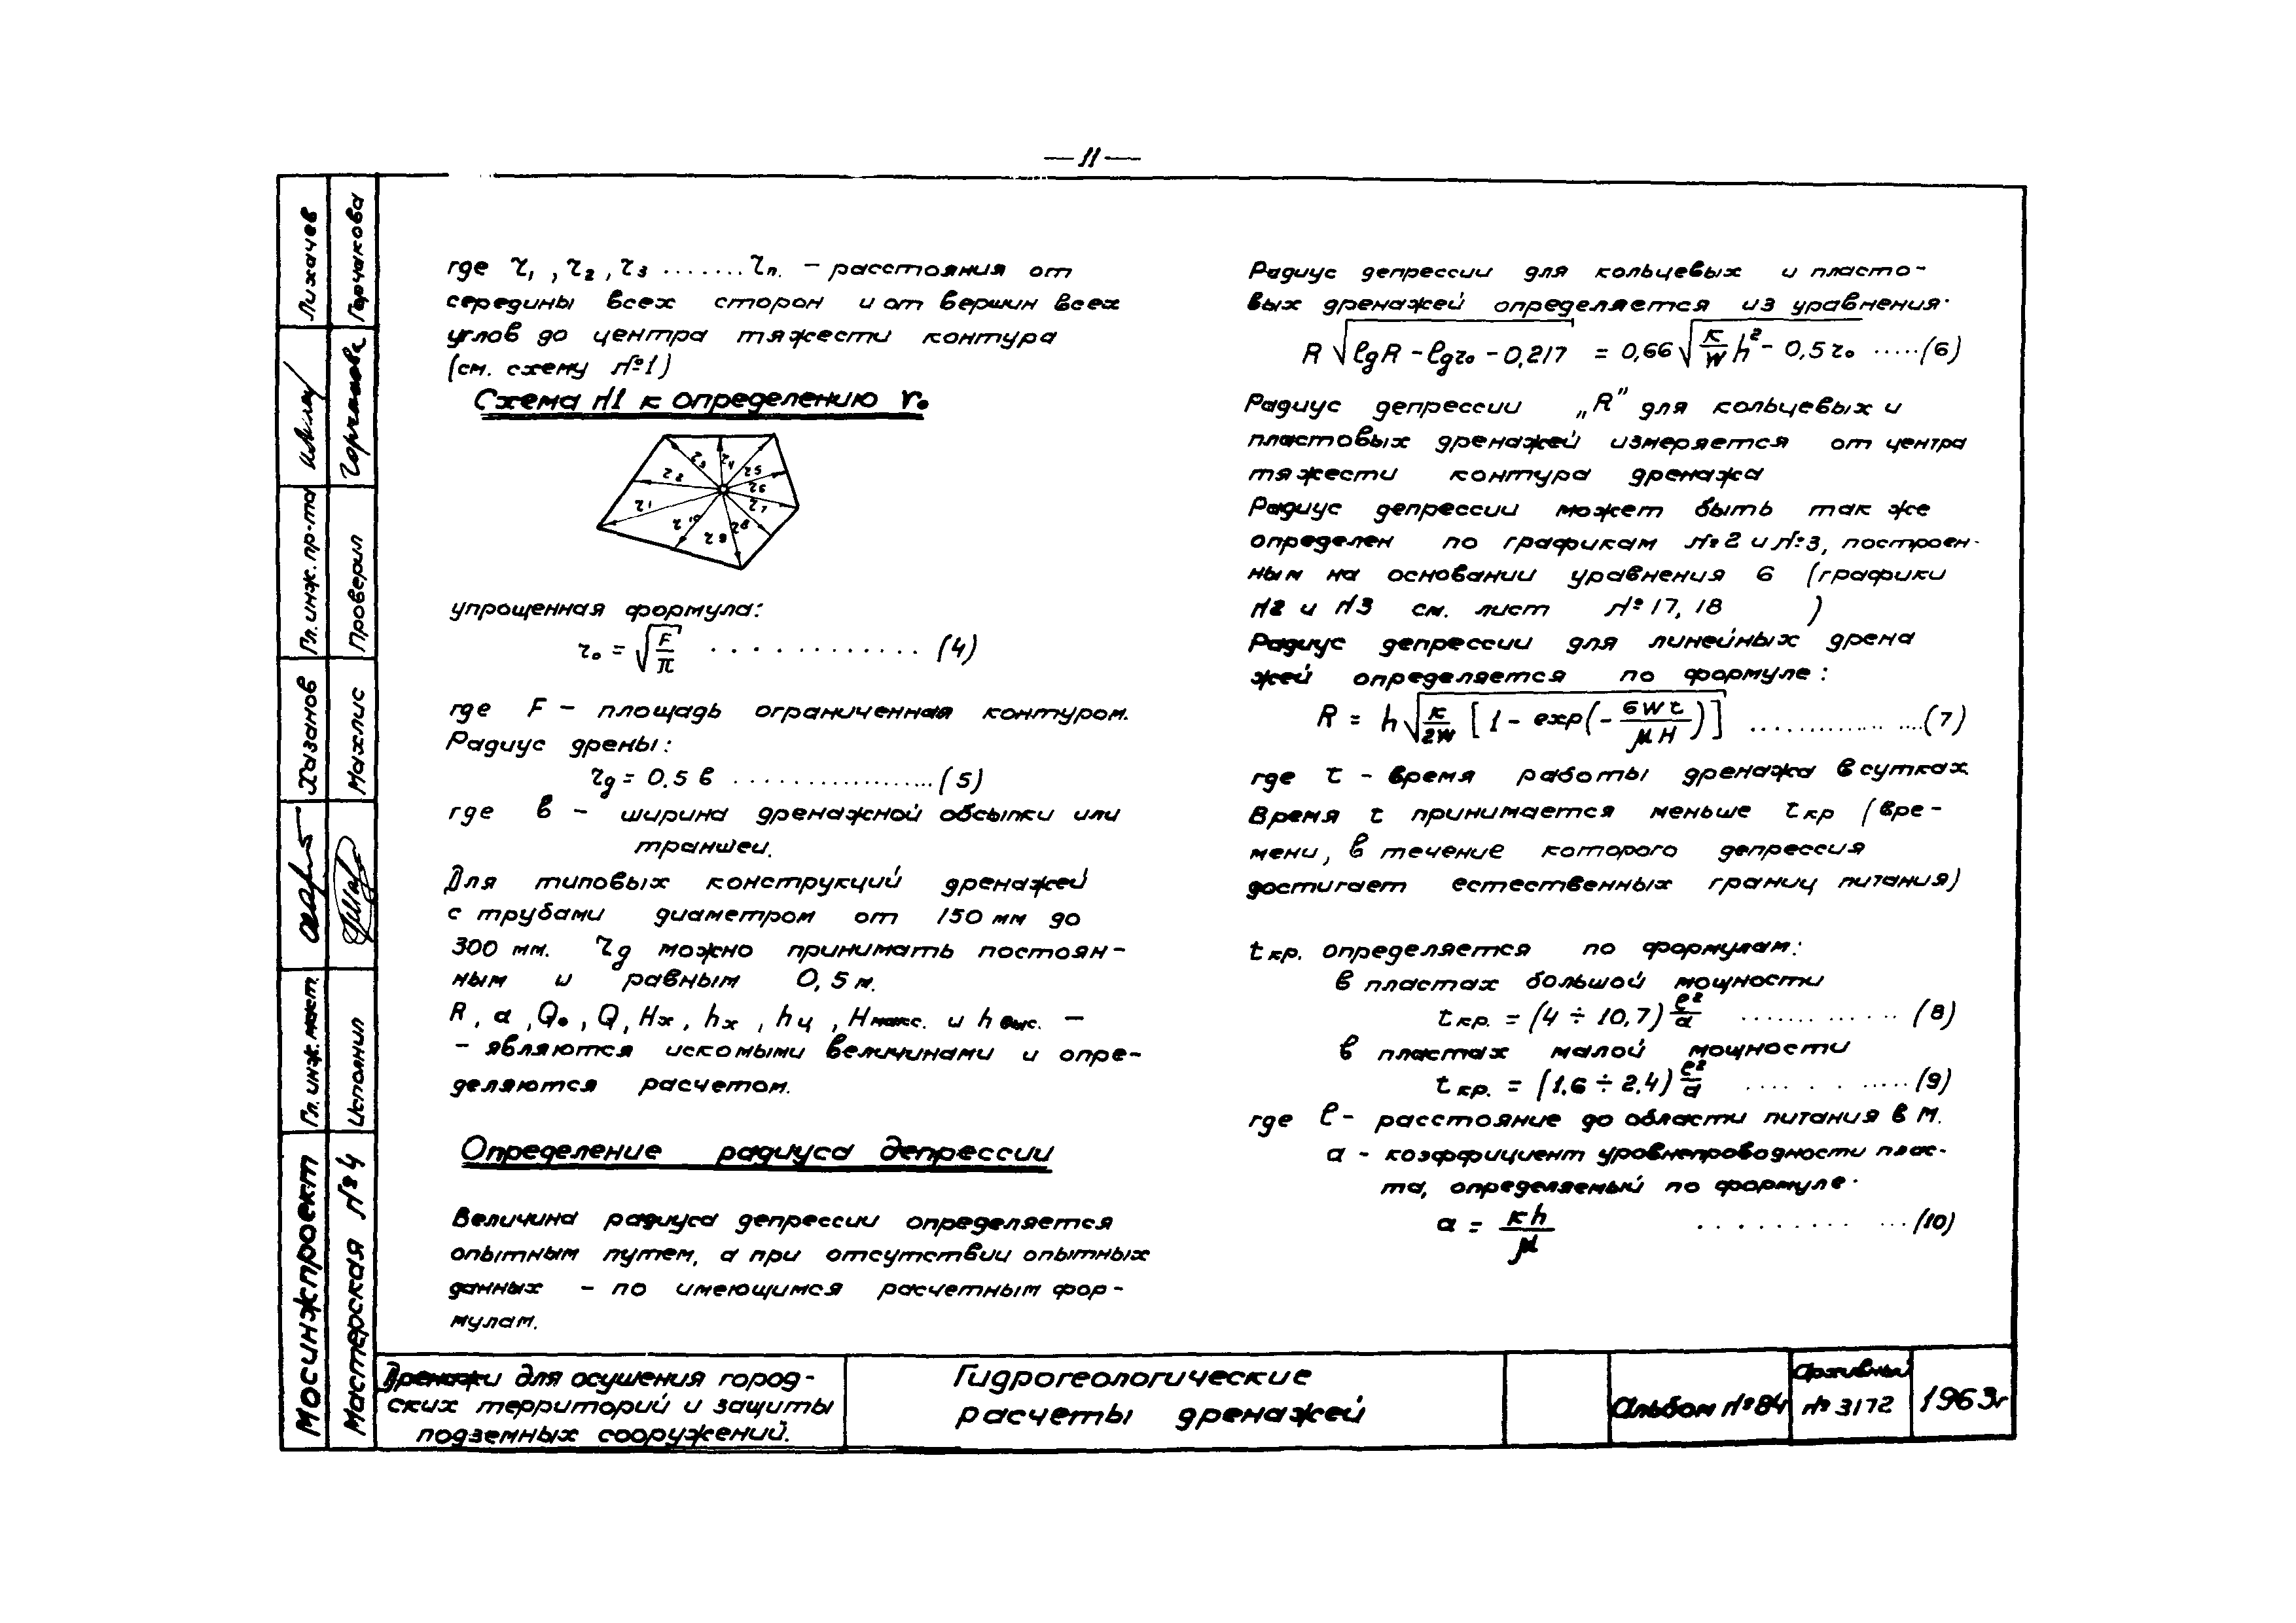 — 11 —
где r₁, r₂, r₃ ....... rп. – расстояния от
середины всех сторон и от вершин всех
углов до центра тяжести контура
(см. схему №1)
Схема №1 к определению r₀
r1
r2
r3
r4
r5
r6
r7
r8
r9
r10
упрощенная формула:
r₀ = √(F/π) ............ (4)
где F – площадь ограниченная контуром.
Радиус дрены:
rд = 0.5 в .................. (5)
где в – ширина дренажной обсыпки или
траншеи.
Для типовых конструкций дренажей
с трубами диаметром от 150 мм до
300 мм. rд можно принимать постоян-
ным и равным 0,5 м.
R, а, Q₀, Q, Hx, hx, hц, Hмакс. и hвыс. –
– являются искомыми величинами и опре-
деляются расчетом.
Определение радиуса депрессии
Величина радиуса депрессии определяется
опытным путем, а при отсутствии опытных
данных – по имеющимся расчетным фор-
мулам.
Радиус депрессии для кольцевых и пласто-
вых дренажей определяется из уравнения:
R √(lgR – lgr₀ – 0,217) = 0,66 √(к/w h² – 0,5 r₀ ..... (6)
Радиус депрессии „R" для кольцевых и
пластовых дренажей измеряется от центра
тяжести контура дренажа
Радиус депрессии может быть так же
определен по графикам №2 и №3, построен-
ным на основании уравнения 6 (графики
№2 и №3 см. лист №17, 18 )
Радиус депрессии для линейных дрена
жей определяется по формуле:
R = h √(к/2w [1 – exp(– 6wt/μH)]) ................ (7)
где t – время работы дренажа в сутках
Время t принимается меньше tкр (вре-
мени, в течение которого депрессия
достигает естественных границ питания)
tкр. определяется по формулам:
в пластах большой мощности
tкр. = (4 ÷ 10,7) ℓ²/а ............. (8)
в пластах малой мощности
tкр. = (1.6 ÷ 2.4) ℓ²/а ............ (9)
где ℓ – расстояние до области питания в м.
а – коэффициент уровнепроводности плас-
та, определяемый по формуле:
а = кh/μ ............ (10)
Мосинжпроект
Мастерская №4
Гл. инж. маст.
Исполнил
Хазанов
Махлис
Гл. инж. пр-та
Проверил
Горчакова
Лихачев
Горчакова
Дренажи для осушения город-
ских территорий и защиты
подземных сооружений.
Гидрогеологические
расчеты дренажей
Альбом №84
Архивный
№ 3172
1963г